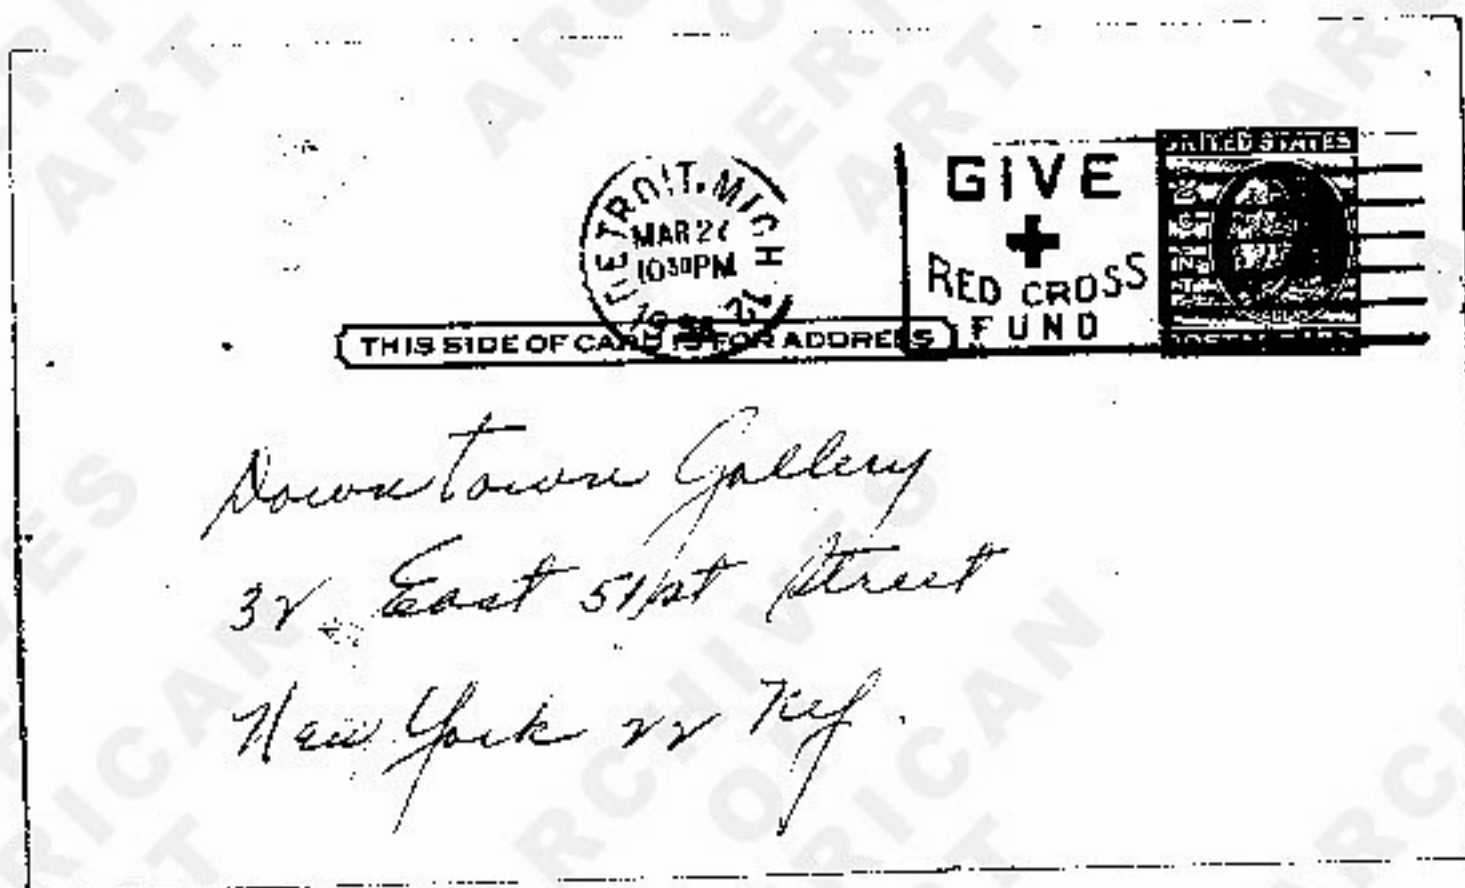 DETROIT, MICH
MAR 27
10 30 PM
GIVE
RED CROSS
FUND
UNITED STATES
THIS SIDE OF CARD IS FOR ADDRESS
Downtown Gallery
32 East 51st Street
New York 22 N.Y.